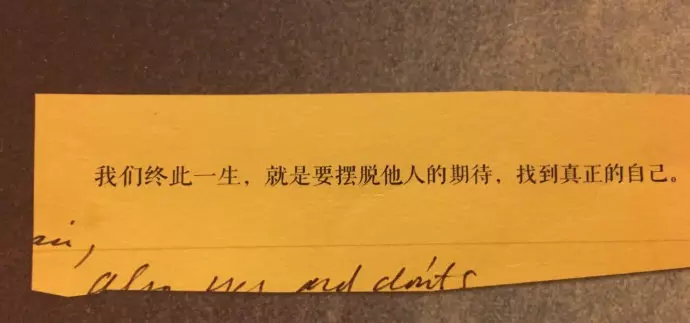 我们终此一生，就是要摆脱他人的期待，找到真正的自己。
also yes and don'ts